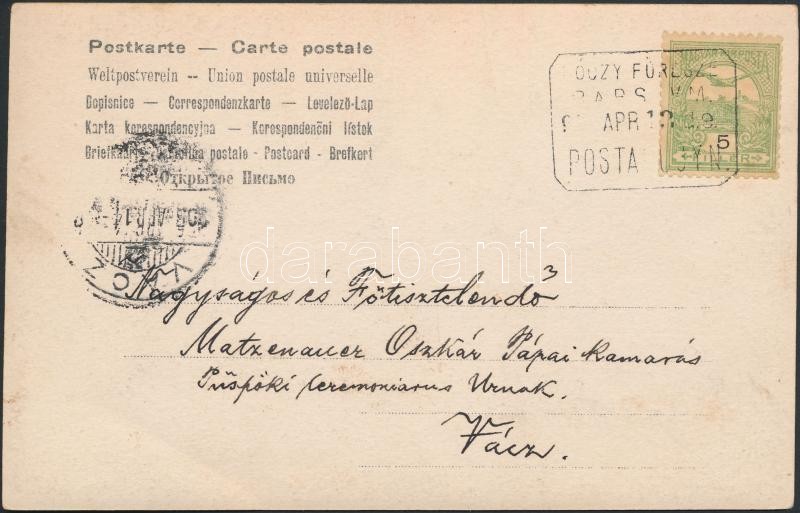 Postkarte — Carte postale
Weltpostverein -- Union postale universelle
Dopisnice — Correspondenzkarte — Levelező-Lap
Karta korespondencyjna — Korespondenční lístek
Briefkaart postale - Postcard - Brefkort
Открытое Письмо
ÓCZY FÜRÉSZ
BARS VM.
APR 12
POSTA ÜYN.
5
FILLÉR
VÁCZ
APR. 14
darabanth
Nagyságos és Főtisztelendő
Matzenauer Oszkár Pápai kamarás
Püspöki Ceremoniarus Urnak.
Vácz.